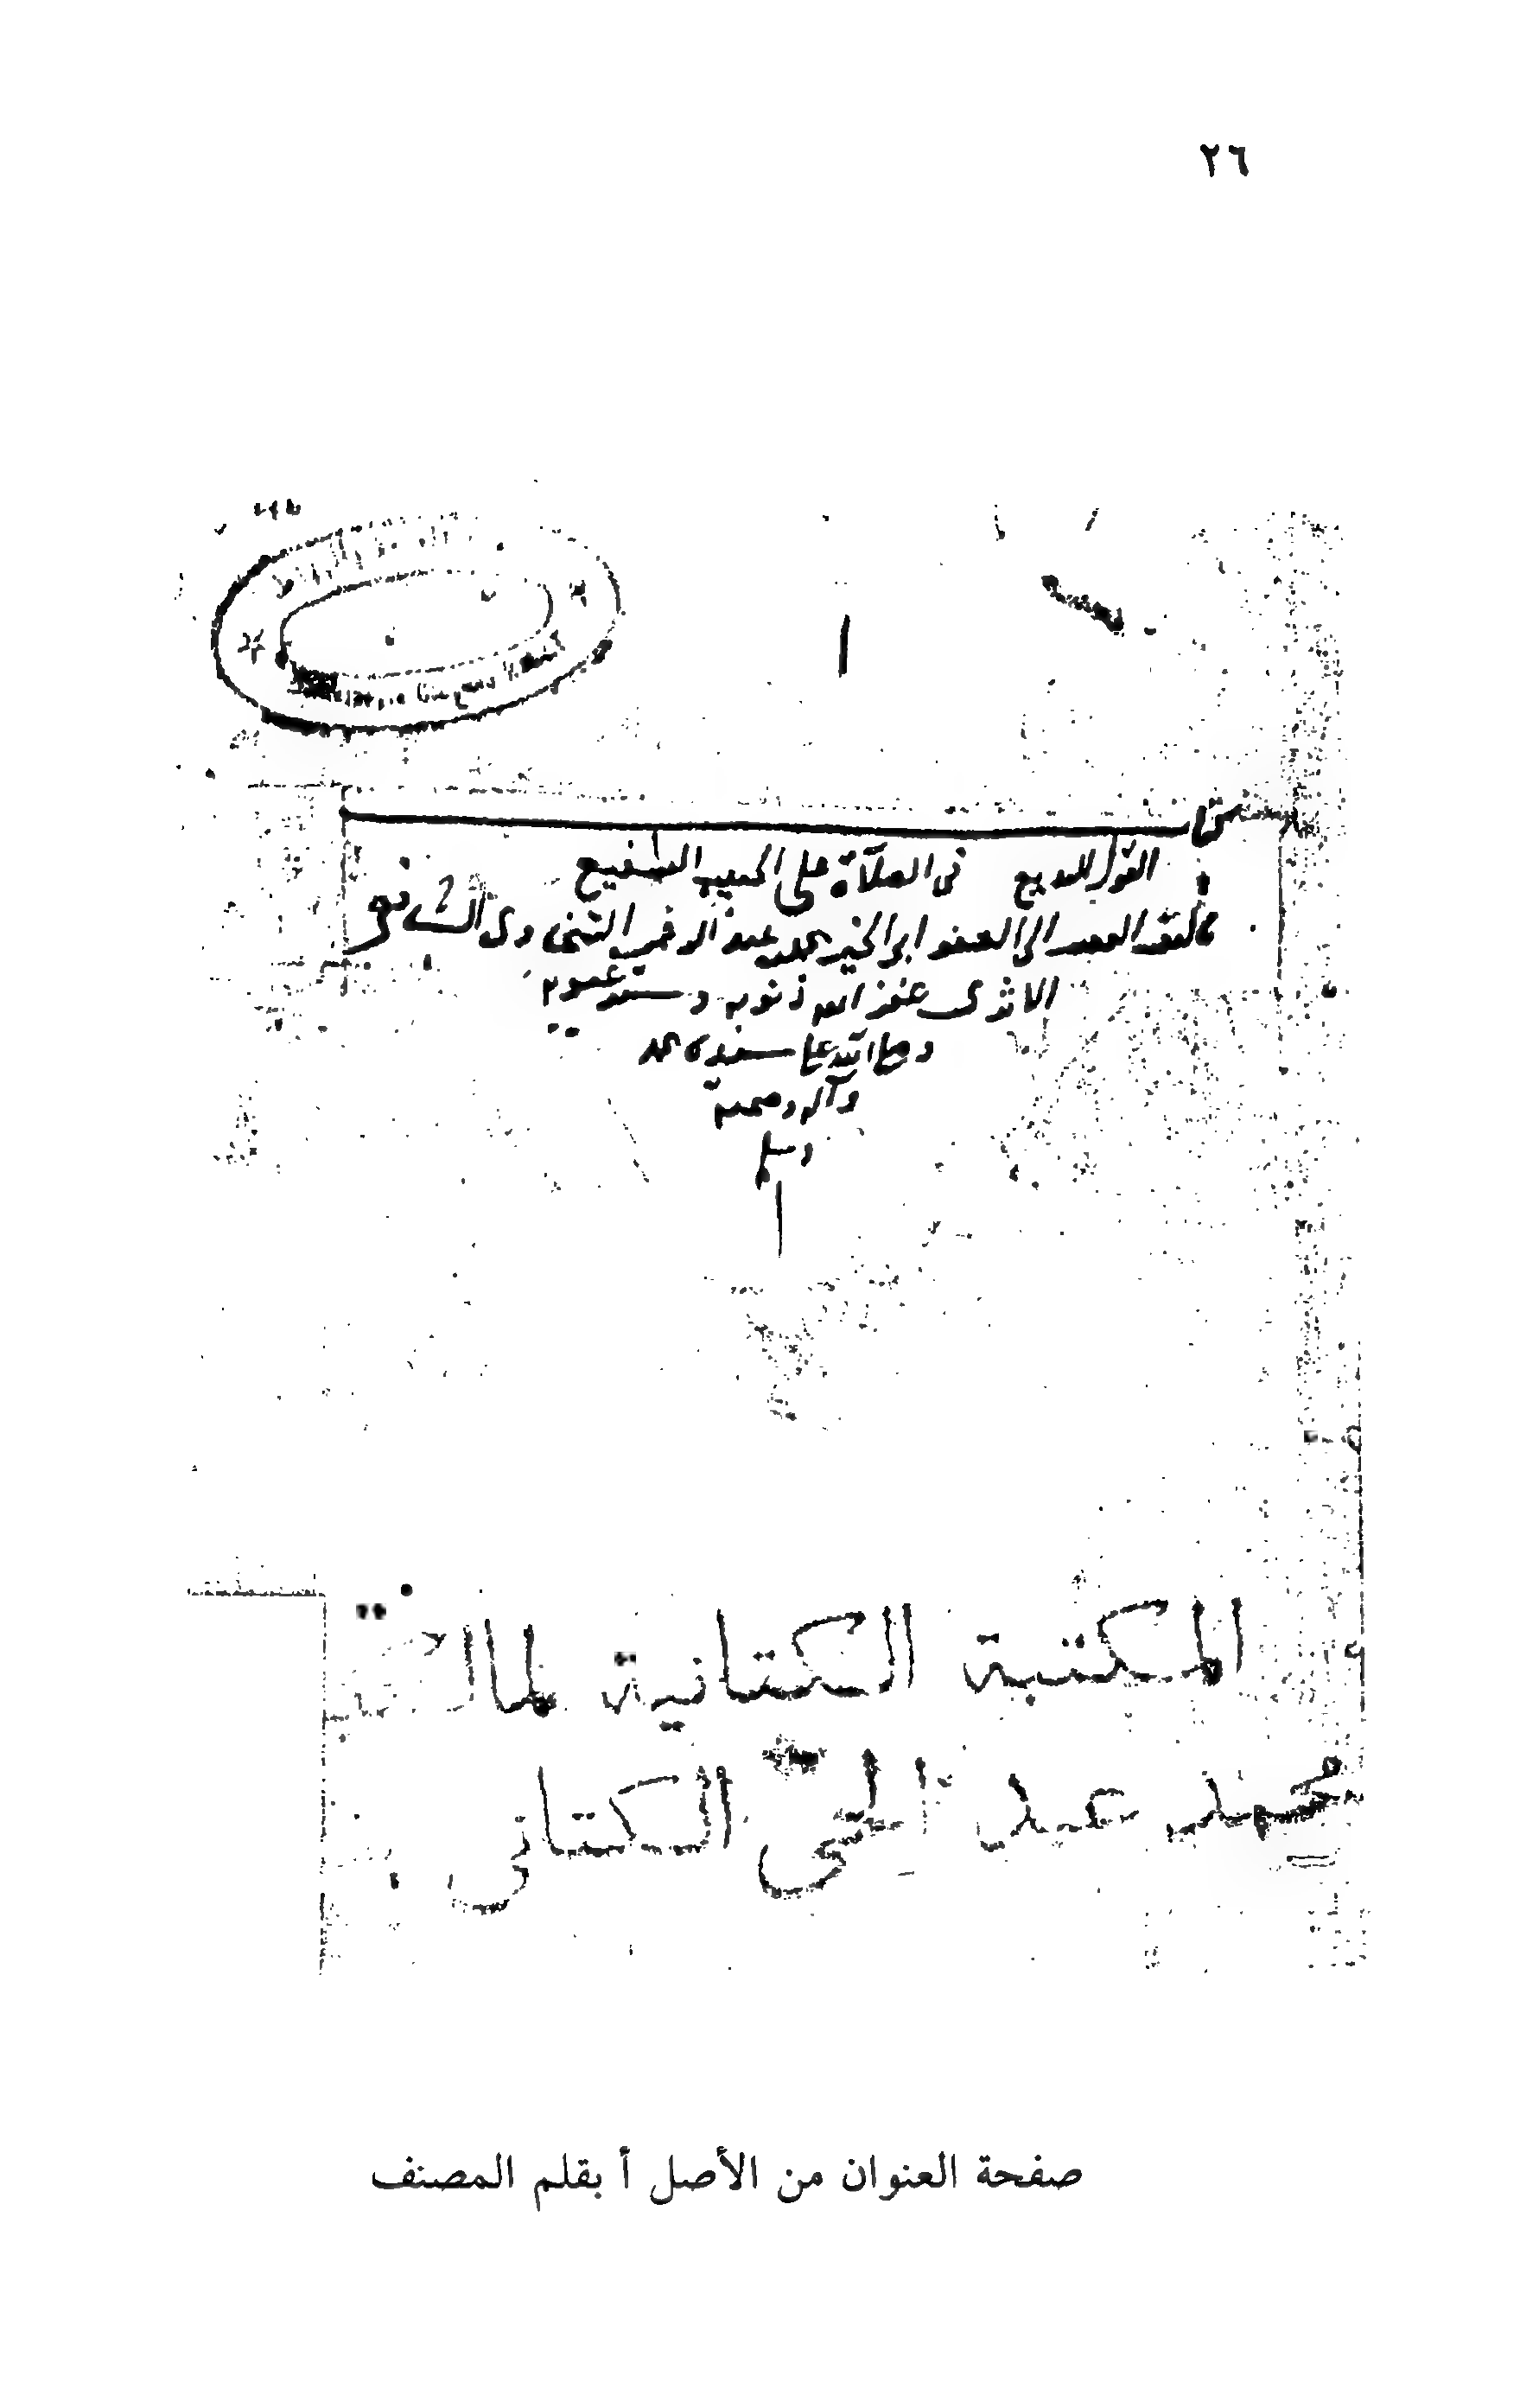 ٢٦
القول البديع في الصلاة على الحبيب الشفيع
تاليف الفقير الى العفو ابي الخير محمد بن عبد الرحمن السخاوي الشافعي
الاثرى غفر الله ذنوبه وستر عيوبه
وصلى الله على سيدنا محمد
وآله وصحبه
وسلم
المكتبة الكتانية
محمد عبد الحي الكتاني
صفحة العنوان من الأصل أ بقلم المصنف